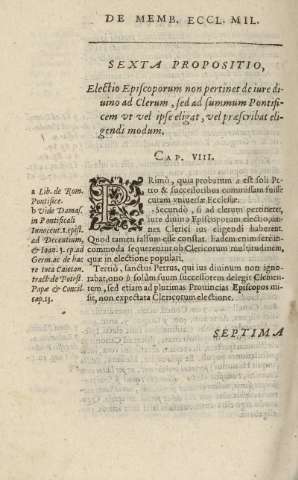 DE MEMB. ECCL. MIL.
SEXTA PROPOSITIO,
Electio Episcoporum non pertinet de iure di-
uino ad Clerum, sed ad summum Pontifi-
cem vt vel ipse eligat, vel præscribat eli-
gendi modum.
CAP. VIII.
a Lib. de Rom.
Pontifice.
b vide Damas.
in Pontificali
Innocent. 1. epist.
ad Decentium,
& Ioan. 3. ep. ad
Germ. ac de hac
re tota Caietan.
tract. de Potest.
Papæ & Concil.
cap. 13.
PRimò, quia probatum a est soli Pe-
tro & successoribus commissam fuisse
curam vniuersæ Ecclesiæ.
Secundò, si ad clerum pertineret,
iure diuino Episcoporum electio, om-
nes Clerici ius eligendi haberent.
Quod tamen falsum esse constat. Iisdem enim ferè in-
commoda sequerentur ob Clericorum multitudinem,
quæ in electione populari.
Tertiò, sanctus Petrus, qui ius diuinum non igno-
rabat, non b solùm suum successorem delegit Clemen-
tem, sed etiam ad plurimas Prouincias Episcopos mi-
sit, non expectata Clericorum electione.
SEPTIMA